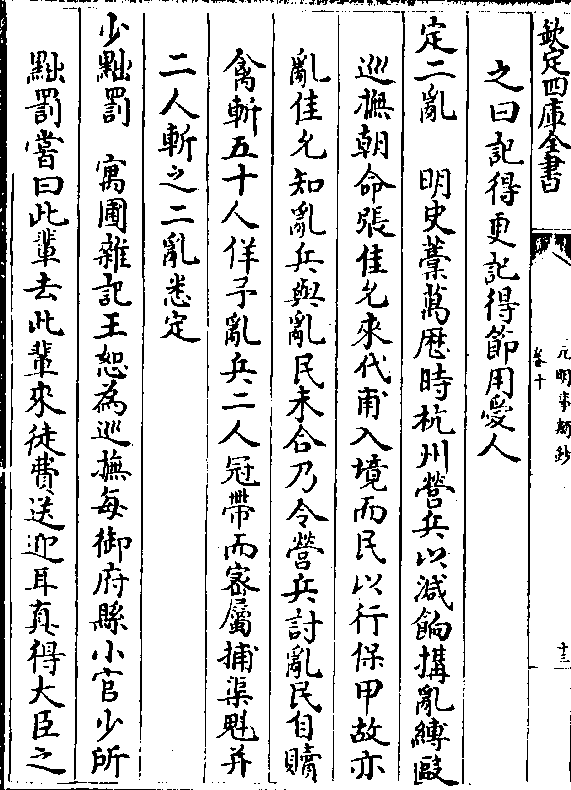 欽定四庫全書
元明事類鈔
卷十
十三
之曰記得更記得節用愛人
定二亂　明史藁萬厯時杭州營兵以減餉搆亂縛毆
巡撫朝命張佳允來代甫入境而民以行保甲故亦
亂佳允知亂兵與亂民未合乃令營兵討亂民自贖
禽斬五十人佯予亂兵二人冠帶而宻屬捕渠魁并
二人斬之二亂悉定
少黜罰　寓圃雜記王恕為巡撫每御府縣小官少所
黜罰嘗曰此輩去此輩來徒費送迎耳真得大臣之